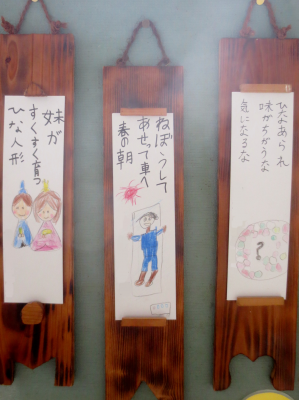 ひなあられ
味がちがうな
気になるな
?
ねぼうして
あせって車へ
春の朝
妹が
すくすく育つ
ひな人形